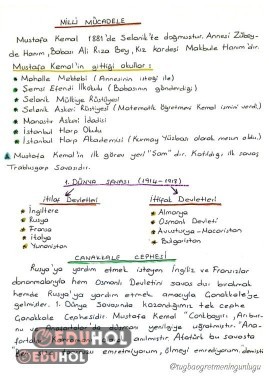 MİLLİ MÜCADELE
Mustafa Kemal 1881'de Selanik'te doğmuştur. Annesi Zübey-
de Hanım, Babası Ali Rıza Bey, Kız kardesi Makbule Hanım'dır.
Mustafa Kemal'in gittiği okullar:
Mahalle Mektebi (Annesinin isteği ile)
Şemsi Efendi İlkokulu (Babasının gönderdiği)
Selanik Mülkiye Rüştiyesi
Selanik Askeri Rüştiyesi (Matematik Öğretmeni Kemal ismini verdi.)
Manastır Askeri İdadisi
İstanbul Harp Okulu
İstanbul Harp Akademisi (Kurmay Yüzbaşı olarak mezun oldu.)
Mustafa Kemal'in ilk görev yeri "Şam" dır. Katıldığı ilk savaş
Trablusgarp Savaşıdır.
1. DÜNYA SAVAŞI (1914-1918)
İtilaf Devletleri
İttifak Devletleri
İngiltere
Almanya
Rusya
Osmanlı Devleti
Fransa
Avusturya-Macaristan
İtalya
Bulgaristan
Yunanistan
ÇANAKKALE CEPHESİ
Rusya'ya yardım etmek isteyen İngiliz ve Fransızlar
donanmalarıyla hem Osmanlı Devletini savaş dışı bırakmak
hemde Rusya'ya yardım etmek amacıyla Çanakkale'ye
gelmişler. 1. Dünya Savaşında kazandığımız tek cephe
Çanakkale Cephesidir. Mustafa Kemal "Conkbayırı, Arıbur-
nu ve Anafartalar'da düşman yenilgiye uğratmıştır. "Ana-
fartalar Kahramanı" Atatürk bu savaşta
"Ben size taarruzu emretmiyorum, ölmeyi emrediyorum" demişti
EDUHOL
EDUHOL
@tugbaogretmeningunlugu